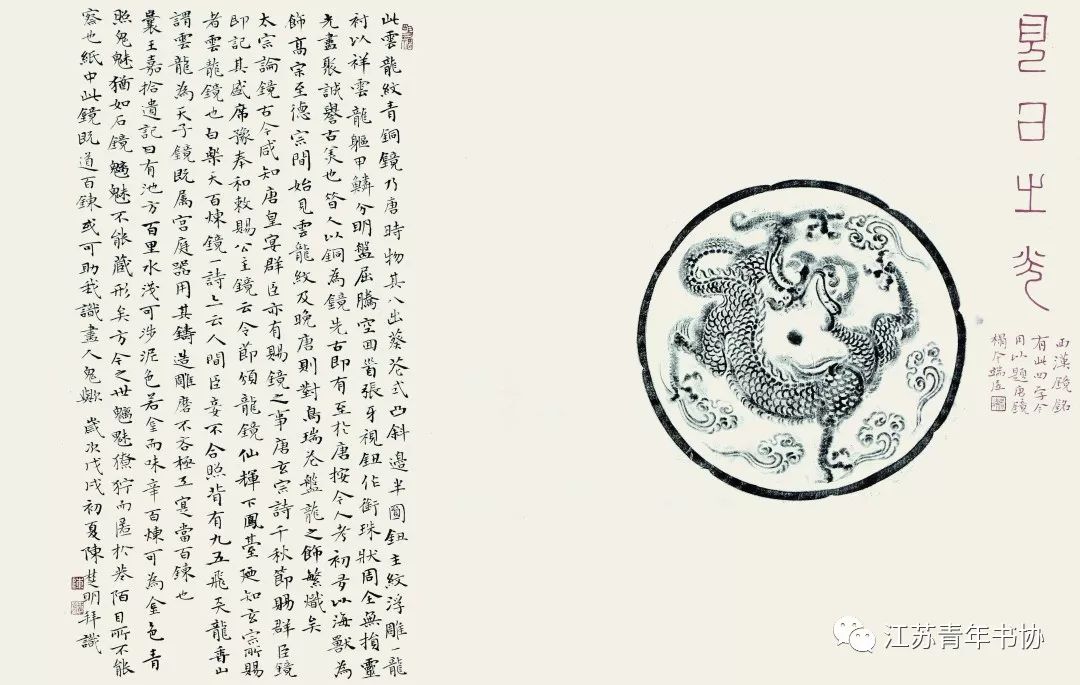 見日之光
西漢鏡銘
有此四字今
用以題唐鏡
此雲龍紋青銅鏡乃唐時物其八出葵花式凸斜邊半圓鈕主紋浮雕一龍
衬以祥雲龍軀甲鱗分明盤屈騰空回首張牙視鈕作銜珠狀周全無損靈
光盡聚誠譽古美也昔人以銅為鏡先古即有至於唐按今人考初多以海獸為
飾高宗至德宗間始見雲龍紋及晚唐則對鳥瑞花盤龍之飾繁熾矣
太宗論鏡古今咸知唐皇宴群臣亦有賜鏡之事唐玄宗詩千秋節賜群臣鏡
即記其盛席豫奉和敕賜公主鏡云令節頒龍鏡仙輝下鳳臺廼知玄宗所賜
者雲龍鏡也白樂天百煉鏡一詩上云人間臣妾不合照背有九五飛天龍香山
謂雲龍為天子鏡既属宫庭器用其鑄造雕磨不吝極工寔當百鍊也
曩王嘉拾遺記曰有池方百里水淺可涉泥色若金而味辛百煉可為金色青
照鬼魅猶如石鏡魑魅不能藏形矣方今之世魑魅獠狞而匿於巷陌目所不能
察也紙中此鏡既道百鍊或可助我識盡人鬼歟 歲次戊戌初夏陳楚明拜識
江苏青年书协